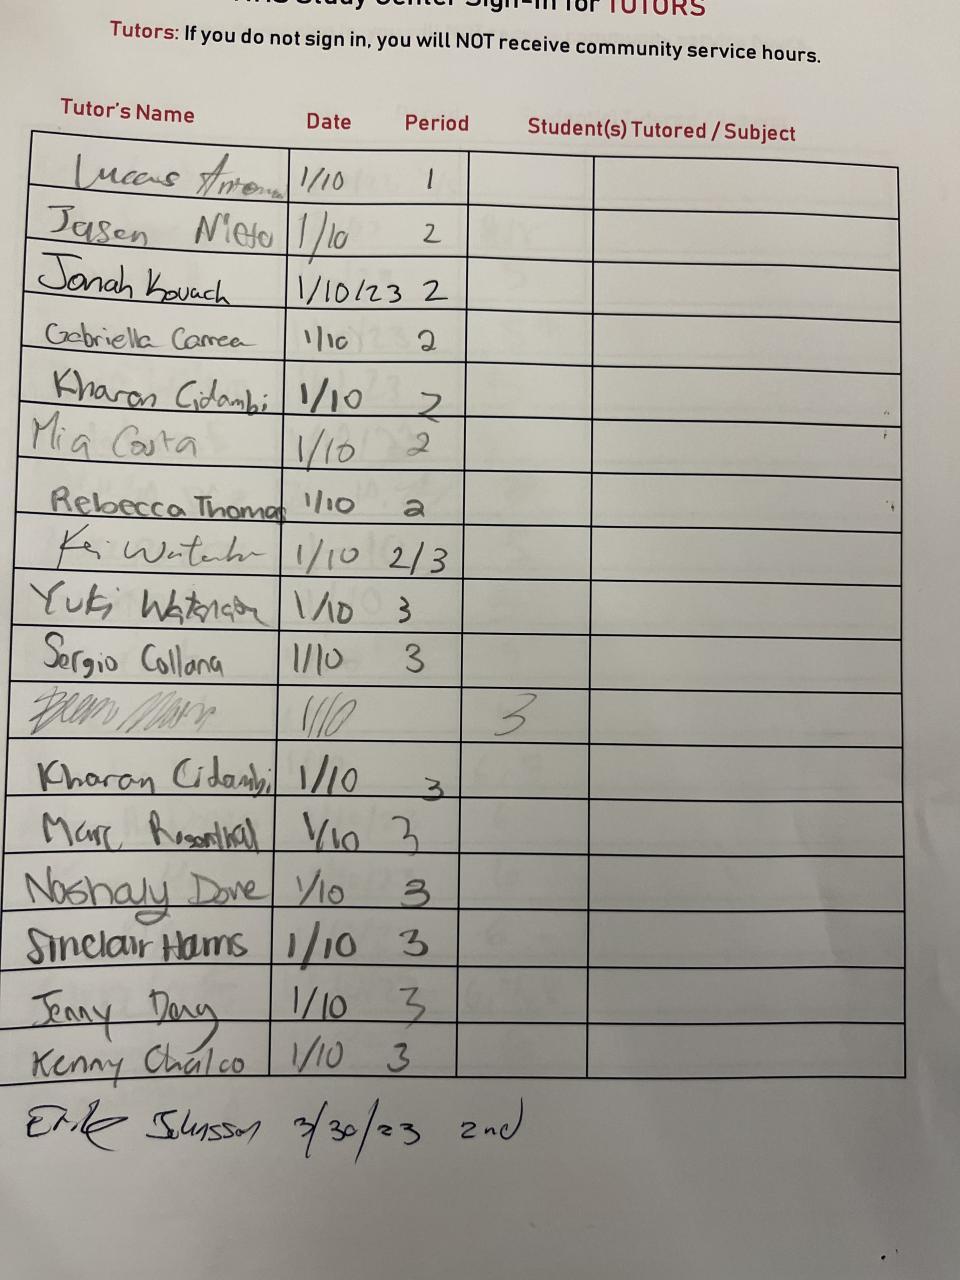 Study Center Sign-In for TUTORS
Tutors: If you do not sign in, you will NOT receive community service hours.
Tutor's Name Date Period Student(s) Tutored / Subject
Luccas 1/10 1
Jasen Nieto 1/10 2
Jonah Kovach 1/10/23 2
Gabriella Correa 1/10 2
Kharan Cidambi 1/10 2
Mia Costa 1/10 2
Rebecca Thomas 1/10 2
Kei 1/10 2/3
Yuki 1/10 3
Sergio Collana 1/10 3
1/10 3
Kharan Cidambi 1/10 3
Marc Rosenthal 1/10 3
Noshaly Dove 1/10 3
Sinclair Harris 1/10 3
Jenny Dong 1/10 3
Kenny Chalco 1/10 3
Johnson 3/30/23 2nd